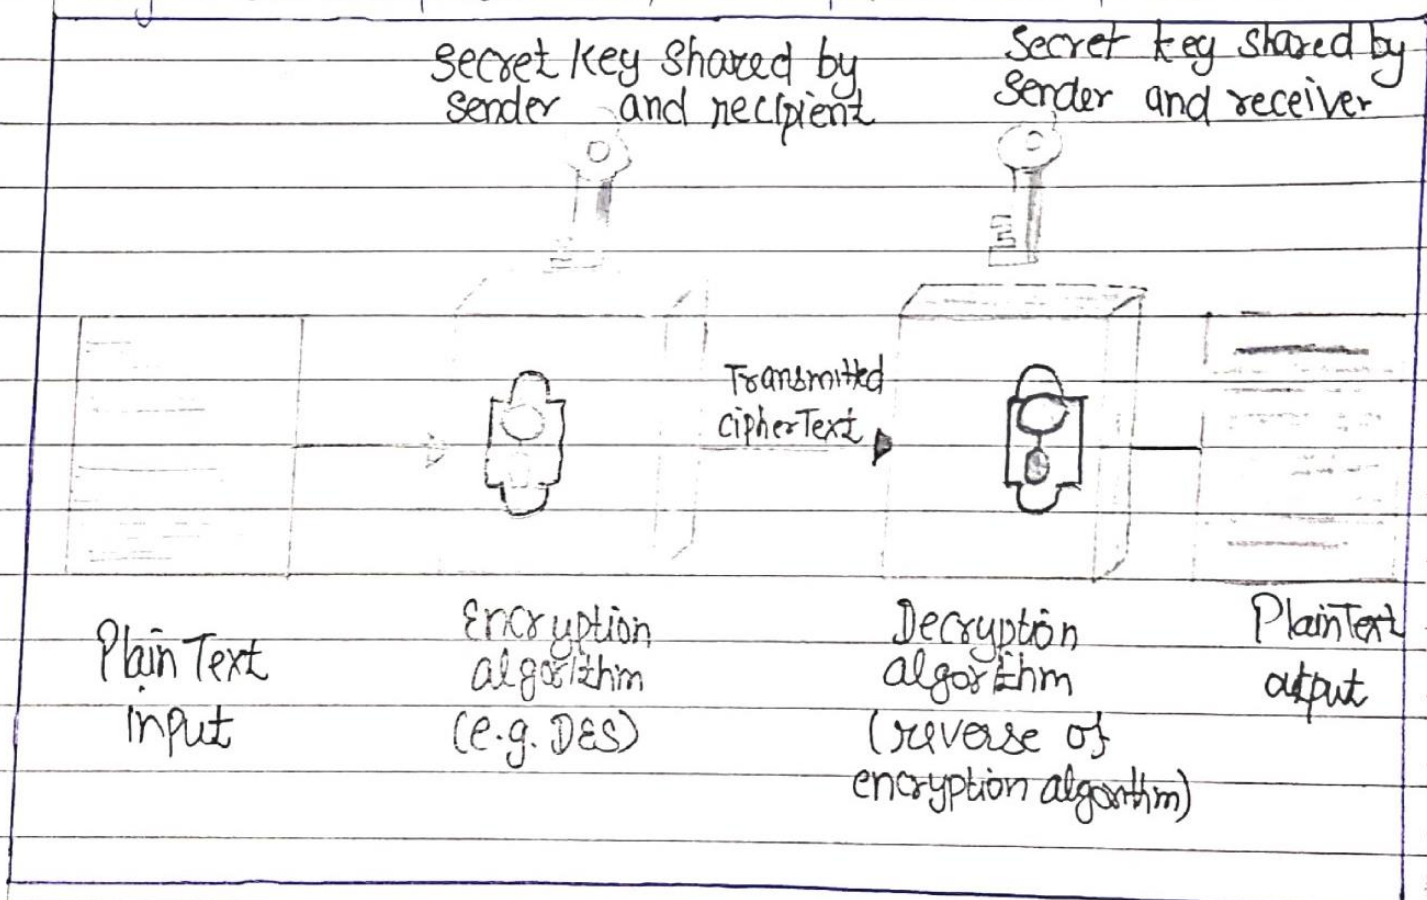 Secret key shared by
sender and recipient
Secret key shared by
Sender and receiver
Transmitted
cipherText
Plain Text
input
Encryption
algorithm
(e.g. DES)
Decryption
algorithm
(reverse of
encryption algorithm)
PlainText
output